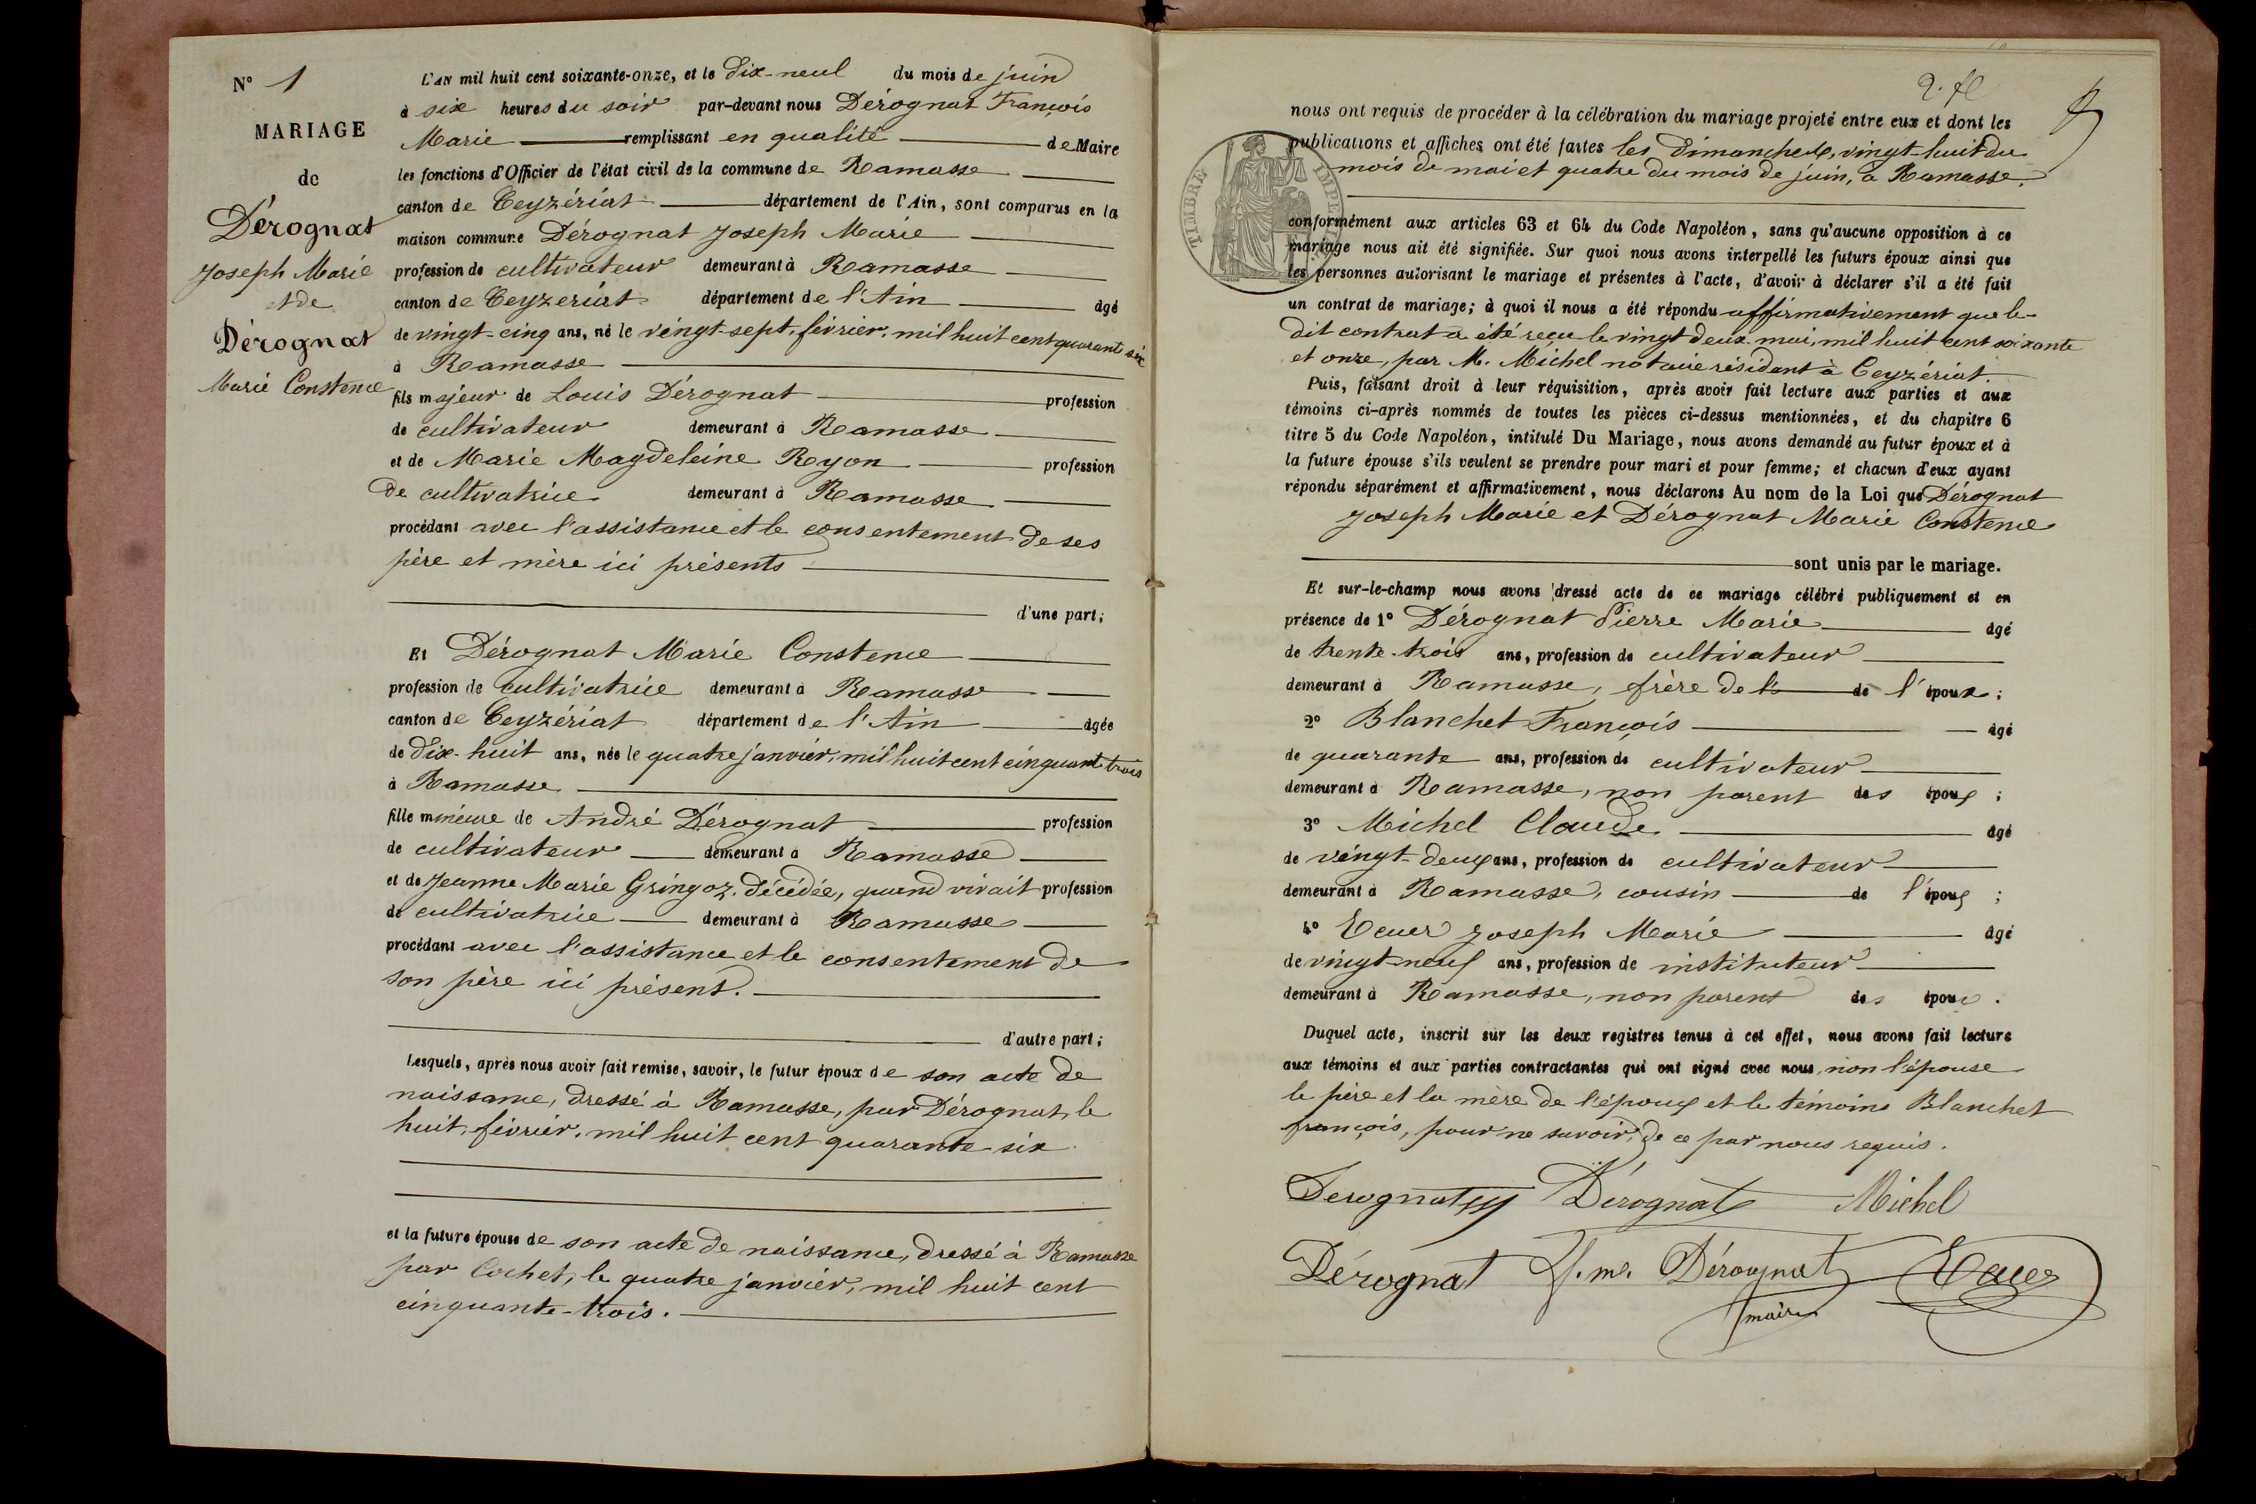 N° 1
MARIAGE
de
Dérognat
Joseph Marie
et de
Dérognat
Marie Constence
L'AN mil huit cent soixante-onze, et le dix-neuf du mois de juin
à six heures du soir par-devant nous Dérognat François
Marie remplissant en qualité de Maire
les fonctions d'Officier de l'état civil de la commune de Ramasse
canton de Ceyzériat département de l'Ain, sont comparus en la
maison commune Dérognat Joseph Marie
profession de cultivateur demeurant à Ramasse
canton de Ceyzeriat département de l'Ain âgé
de vingt-cinq ans, né le vingt-sept, février, mil huit cent quarante six
à Ramasse
fils majeur de Louis Dérognat profession
de cultivateur demeurant à Ramasse
et de Marie Magdeleine Ryon profession
de cultivatrice demeurant à Ramasse
procédant avec l'assistance et le consentement de ses
père et mère ici présents
d'une part;
Et Dérognat Marie Constence
profession de cultivatrice demeurant à Ramasse
canton de Ceyzériat département de l'Ain âgée
de dix-huit ans, née le quatre janvier, mil huit cent cinquante trois
à Ramasse
fille mineure de André Dérognat profession
de cultivateur demeurant à Ramasse
et de Jeanne Marie Gringoz, décédée, quand vivait profession
de cultivatrice demeurant à Ramasse
procédant avec l'assistance et le consentement de
son père ici présent.
d'autre part;
Lesquels, après nous avoir fait remise, savoir, le futur époux de son acte de
naissance, dressé à Ramasse, par Dérognat, le
huit, février, mil huit cent quarante six
et la future épouse de son acte de naissance, dressé à Ramasse
par Cochet, le quatre janvier, mil huit cent
cinquante-trois.
nous ont requis de procéder à la célébration du mariage projeté entre eux et dont les
publications et affiches ont été faites les dimanches, vingt huit du
mois de mai et quatre du mois de juin, à Ramasse.
TIMBRE IMPE
conformément aux articles 63 et 64 du Code Napoléon, sans qu'aucune opposition à ce
mariage nous ait été signifiée. Sur quoi nous avons interpellé les futurs époux ainsi que
les personnes autorisant le mariage et présentes à l'acte, d'avoir à déclarer s'il a été fait
un contrat de mariage; à quoi il nous a été répondu affirmativement que le
dit contrat a été reçu le vingt deux mai, mil huit cent soixante
et onze, par M. Michel notaire résidant à Ceyzériat.
Puis, faisant droit à leur réquisition, après avoir fait lecture aux parties et aux
témoins ci-après nommés de toutes les pièces ci-dessus mentionnées, et du chapitre 6
titre 5 du Code Napoléon, intitulé Du Mariage, nous avons demandé au futur époux et à
la future épouse s'ils veulent se prendre pour mari et pour femme; et chacun d'eux ayant
répondu séparément et affirmativement, nous déclarons Au nom de la Loi que Dérognat
Joseph Marie et Dérognat Marie Constence
sont unis par le mariage.
Et sur-le-champ nous avons dressé acte de ce mariage célébré publiquement et en
présence de 1° Dérognat Pierre Marie âgé
de trente-trois ans, profession de cultivateur
demeurant à Ramasse, frère de l' de l'époux;
2° Blanchet François âgé
de quarante ans, profession de cultivateur
demeurant à Ramasse, non parent des époux;
3° Michel Claude âgé
de vingt-deux ans, profession de cultivateur
demeurant à Ramasse, cousin de l'époux;
4° Ecuer Joseph Marie âgé
de vingt-neuf ans, profession de instituteur
demeurant à Ramasse, non parent des époux.
Duquel acte, inscrit sur les deux registres tenus à cet effet, nous avons fait lecture
aux témoins et aux parties contractantes qui ont signé avec nous, non l'épouse
le père et la mère de l'époux et le témoins Blanchet
françois, pour ne savoir, de ce par nous requis.
Derognat Dérognat Michel
Dérognat f. m. Dérognat Ecuer
maire